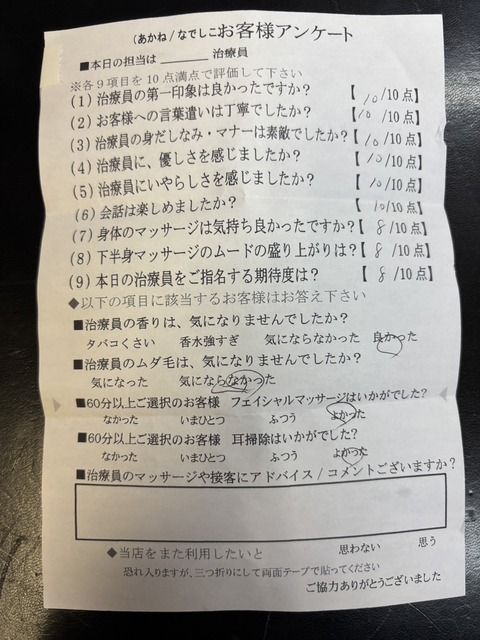 (あかね/なでしこ お客様アンケート
■本日の担当は＿＿＿＿＿治療員
※各9項目を10点満点で評価して下さい
(1) 治療員の第一印象は良かったですか? 【 10 /10点】
(2) お客様への言葉遣いは丁寧でしたか? 【 10 /10点】
(3) 治療員の身だしなみ・マナーは素敵でしたか? 【 10 /10点】
(4) 治療員に、優しさを感じましたか? 【 10 /10点】
(5) 治療員にいやらしさを感じましたか? 【 10 /10点】
(6) 会話は楽しめましたか? 【 10 /10点】
(7) 身体のマッサージは気持ち良かったですか? 【 8 /10点】
(8) 下半身マッサージのムードの盛り上がりは? 【 8 /10点】
(9) 本日の治療員をご指名する期待度は? 【 8 /10点】
◆以下の項目に該当するお客様はお答え下さい
■治療員の香りは、気になりませんでしたか?
タバコくさい 香水強すぎ 気にならなかった 良かった
■治療員のムダ毛は、気になりませんでしたか?
気になった 気にならなかった
■60分以上ご選択のお客様 フェイシャルマッサージはいかがでした?
なかった いまひとつ ふつう よかった
■60分以上ご選択のお客様 耳掃除はいかがでした?
なかった いまひとつ ふつう よかった
■治療員のマッサージや接客にアドバイス/コメントございますか?
◆当店をまた利用したいと 思わない 思う
恐れ入りますが、三つ折りにして両面テープで貼ってください
ご協力ありがとうございました